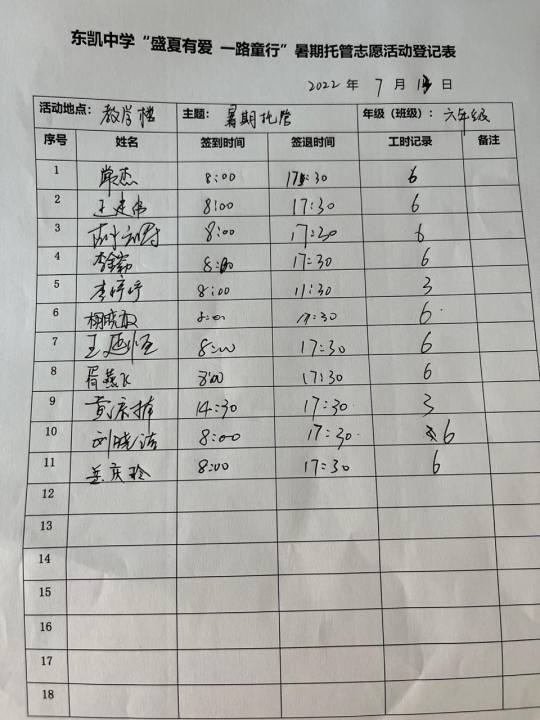 东凯中学“盛夏有爱 一路童行”暑期托管志愿活动登记表
2022 年 7 月 日
活动地点： 教学楼 主题： 暑期托管 年级（班级）： 六年级
序号 姓名 签到时间 签退时间 工时记录 备注
1 常杰 8:00 17:30 6
2 王建伟 8:00 17:30 6
3 8:00 17:30 6
4 8:00 17:30 6
5 李婷婷 8:00 11:30 3
6 8:00 17:30 6
7 8:00 17:30 6
8 胥燕飞 8:00 17:30 6
9 14:30 17:30 3
10 刘晓洁 8:00 17:30 6
11 8:00 17:30 6
12
13
14
15
16
17
18